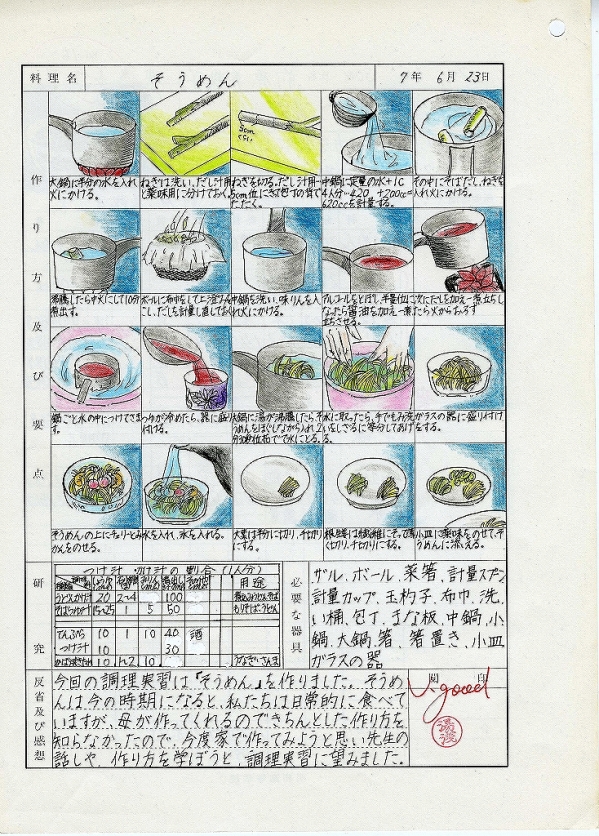 料理名 そうめん 7年 6月 23日
作り方及び要点
5cm
くらい
大鍋に半分の水を入れ
火にかける。
ねぎは洗い、だし汁用
と薬味用に分けておく。
ねぎを切る。だし汁用…
5cm位にきり包丁の背で
たたく。
中鍋に定量の水+1C
4人分…420+200cc=
620ccを計量する。
その中にそばだし、ねぎを
入れ火にかける。
沸騰したら中火にして10分
煮出す。
ボールに布巾をして上澄みを
こし、だしを計量し直しておく
中鍋を洗い、味りんを入
れ火にかける。
アルコールをとばし、半量位に
なったら醤油を加え一煮
立ちさせる。
次にだしを加え一煮立ちし
たら火からおろす
鍋ごと水の中につけてさま
す。
つゆが冷めたら、器に盛り
付ける。
大鍋に湯が沸騰したらそ
うめんをほぐしながら入れ2
分
水に取ったら、手でもみ洗
いをしざるに等分してあげ
る。
ガラスの器に盛り付け
をする。
そうめんの上にチェリーとみ
かんをのせる。
水を入れ、氷を入れる。
大葉は半分に切り、千切り
にする。
く切り、千切りにする。
小皿に薬味をのせて、そ
うめんに添える。
研究
つけ汁 かけ汁の割合(1人分)
用途
うどんかけ汁 20 2~4 100
そばつゆかけ汁 15~25 1 5 50 もりそば・うどん
てんぷら
つけ汁 10 1 10 40 酒
10 30
かばやきたれ 10 1~2 10 うなぎ・さんま
必要な器具
ザル、ボール、菜箸、計量スプン
計量カップ、玉杓子、布巾、洗
い桶、包丁、まな板、中鍋、小
鍋、大鍋、箸、箸置き、小皿
ガラスの器
反省及び感想
今回の調理実習は「そうめん」を作りました。そうめ
んは今の時期になると、私たちは日常的に食べて
いますが、母が作ってくれるのできちんとした作り方を
知らなかったので、今度家で作ってみようと思い先生の
話しや、作り方を学ぼうと、調理実習に望みました。
閲 印
V. good